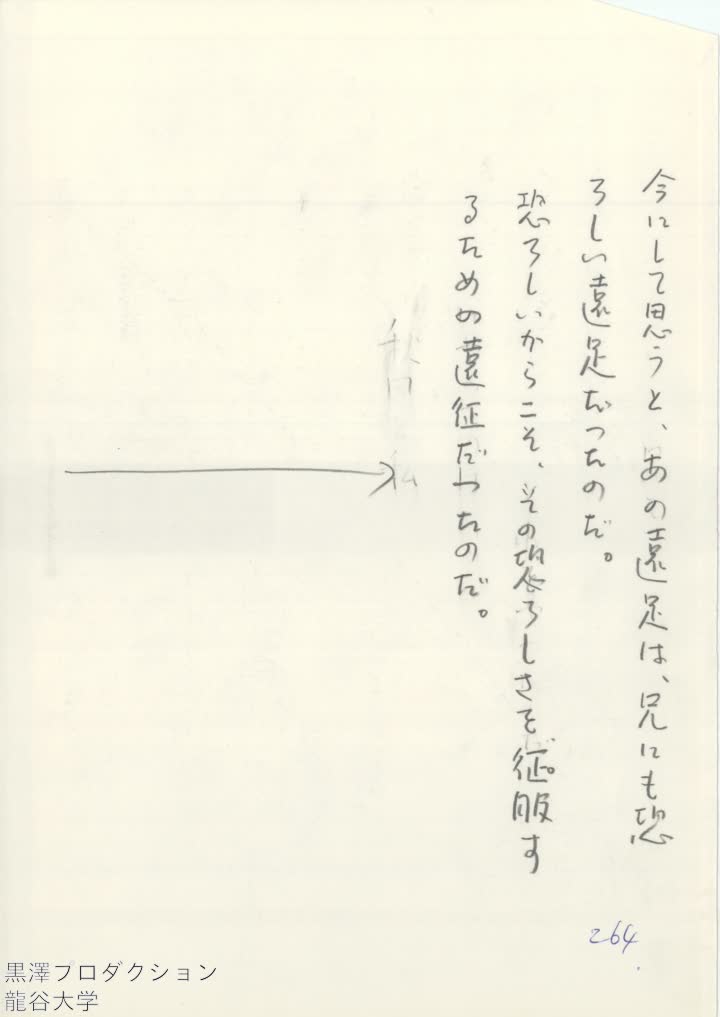 今にして思うと、あの遠足は、兄にも恐
ろしい遠足だつたのだ。
恐ろしいからこそ、その恐ろしさを征服す
るための遠征だつたのだ。
私
264
黒澤プロダクション
龍谷大学